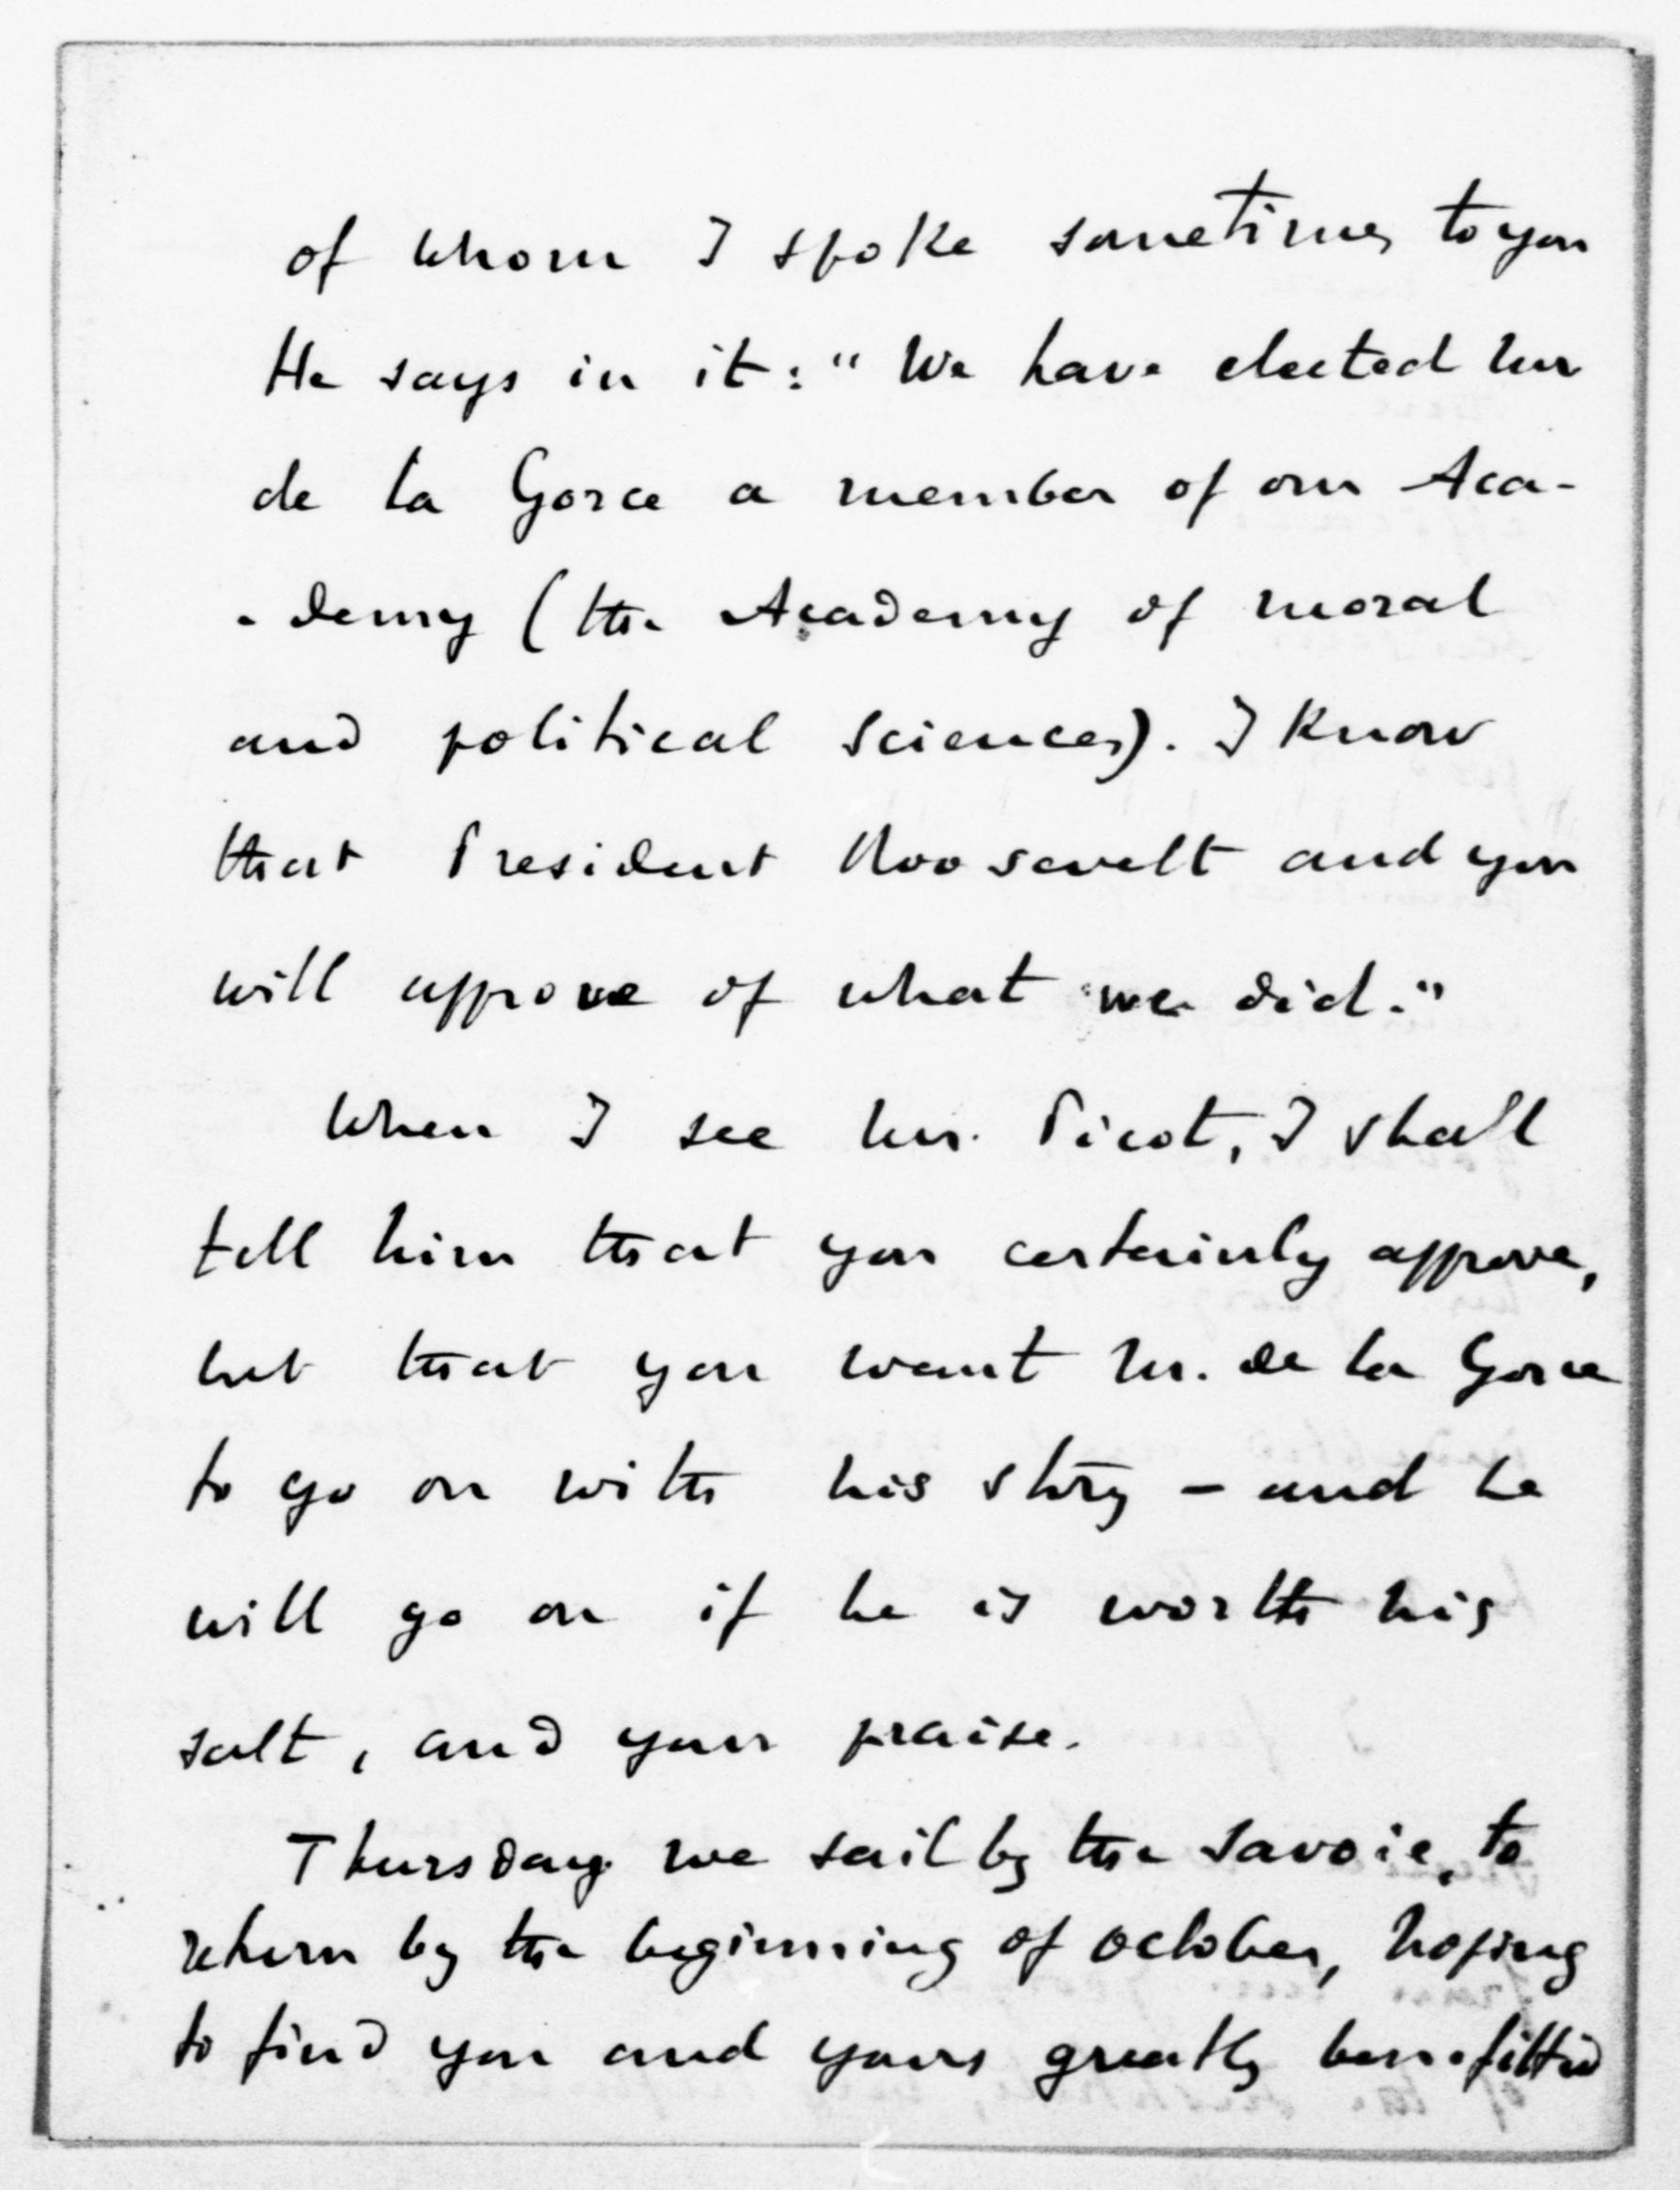 of whom I spoke sometimes to you
He says in it: "We have elected Mr
de la Gorce a member of our Aca-
-demy (the Academy of moral
and political sciences). I know
that President Roosevelt and you
will approve of what we did."
When I see Mr. Picot, I shall
tell him that you certainly approve,
but that you want M. de la Gorce
to go on with his story - and he
will go on if he is worth his
salt, and your praise.
Thursday we sail by the Savoie, to
return by the beginning of october, hoping
to find you and yours greatly benefitted